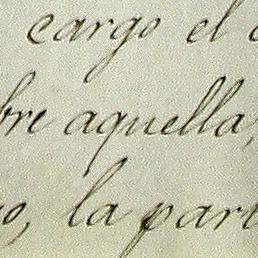 cargo el
bre aquella,
o, la part